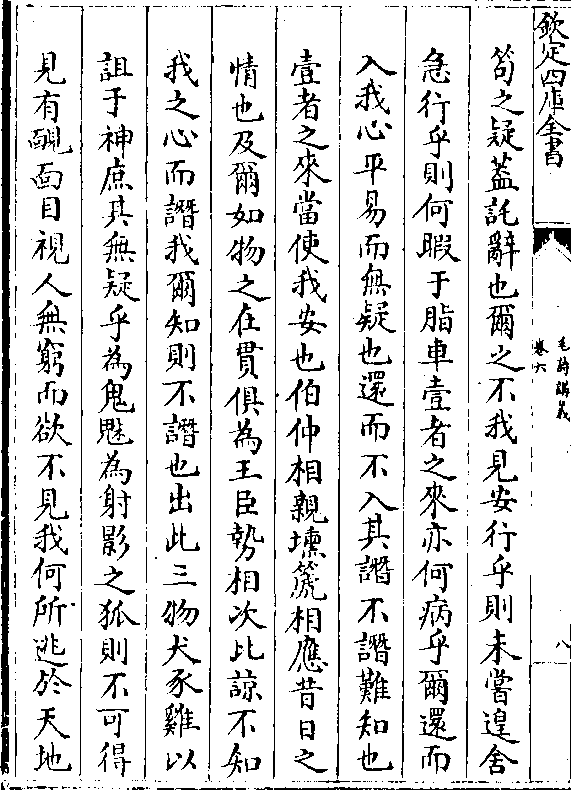 欽定四庫全書
毛詩講義
卷六
八
笱之疑蓋託辭也爾之不我見安行乎則未嘗遑舍
急行乎則何暇于脂車壹者之來亦何病乎爾還而
入我心平易而無疑也還而不入其譖不譖難知也
壹者之來當使我安也伯仲相親壎篪相應昔日之
情也及爾如物之在貫俱為王臣勢相次比諒不知
我之心而譖我爾知則不譖也出此三物犬豕雞以
詛于神庶其無疑乎為鬼魅為射影之狐則不可得
見有靦面目視人無窮而欲不見我何所逃於天地